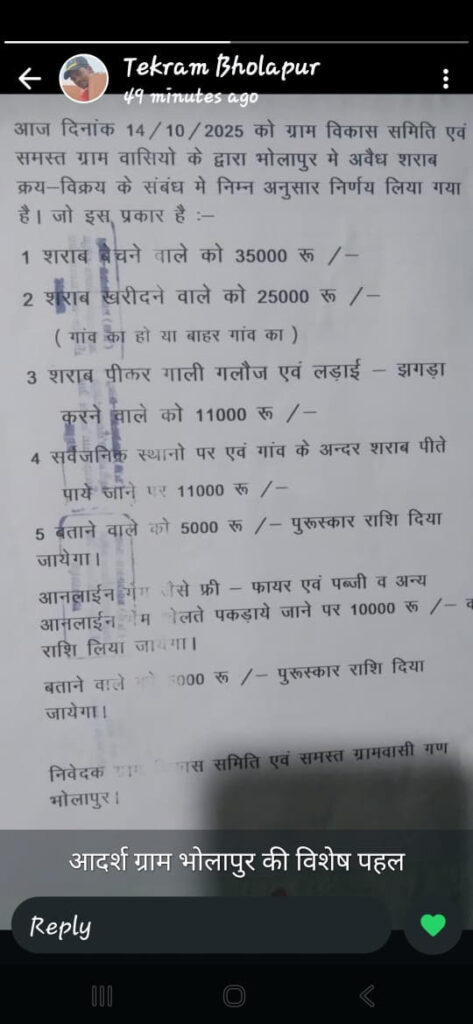 Tekram Bholapur
49 minutes ago
आज दिनांक 14/10/2025 को ग्राम विकास समिति एवं
समस्त ग्राम वासियो के द्वारा भोलापुर मे अवैध शराब
क्रय-विक्रय के संबंध मे निम्न अनुसार निर्णय लिया गया
है। जो इस प्रकार है :-
1 शराब बेचने वाले को 35000 रू /-
2 शराब खरीदने वाले को 25000 रू /-
( गांव का हो या बाहर गांव का )
3 शराब पीकर गाली गलौज एवं लड़ाई - झगड़ा
करने वाले को 11000 रू /-
4 सर्वजनिक स्थानो पर एवं गांव के अन्दर शराब पीते
पाये जाने पर 11000 रू /-
5 बताने वाले को 5000 रू /- पुरूस्कार राशि दिया
जायेगा।
आनलाईन जैसे फ्री - फायर एवं पब्जी व अन्य
आनलाईन खेलते पकड़ाये जाने पर 10000 रू /-
राशि लिया जायेगा।
बताने वाले को रू /- पुरूस्कार राशि दिया
जायेगा।
निवेदक ग्राम विकास समिति एवं समस्त ग्रामवासी गण
भोलापुर।
आदर्श ग्राम भोलापुर की विशेष पहल
Reply